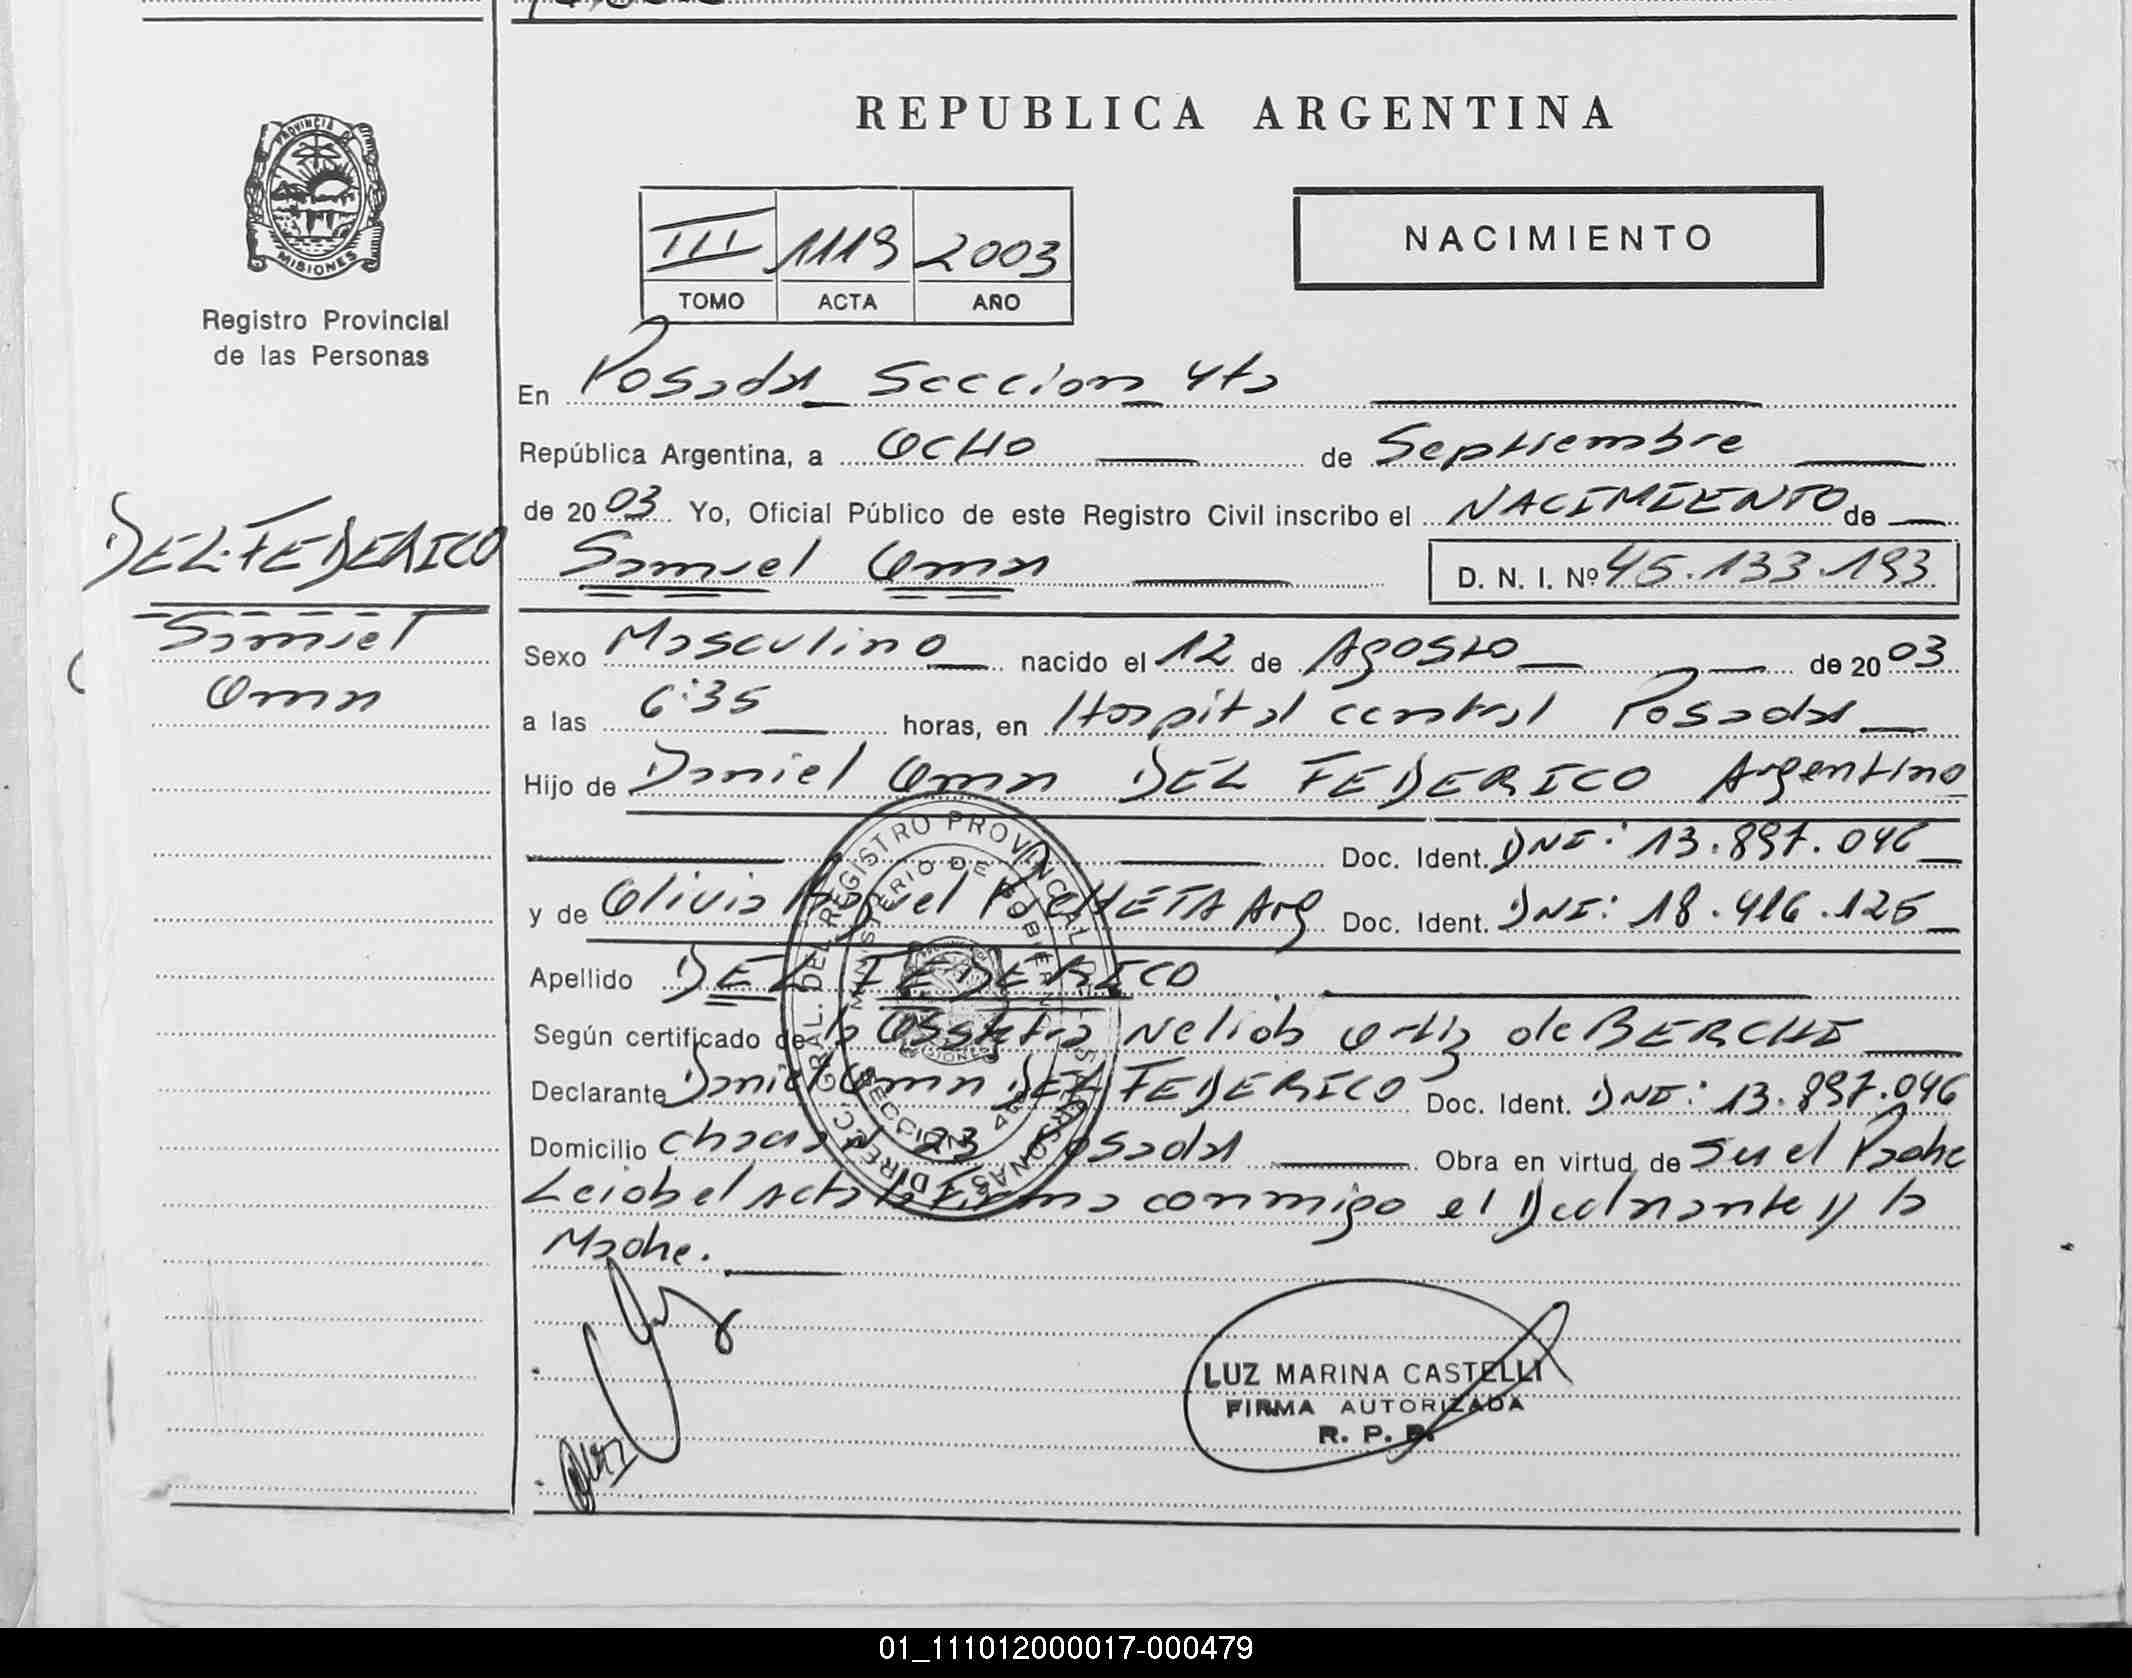 REPUBLICA ARGENTINA
PROVINCIA DE
MISIONES
Registro Provincial
de las Personas
III 1119 2003
TOMO ACTA AÑO
NACIMIENTO
En Posadas Seccion 4ta
República Argentina, a OCHO de Septiembre
de 2003 Yo, Oficial Público de este Registro Civil inscribo el NACIMIENTO de
Samuel Omar D. N. I. Nº 45.133.193
DEL FEDERICO
Samuel
Omar
Sexo Masculino nacido el 12 de Agosto de 2003
a las 6:35 horas, en Hospital central Posadas
Hijo de Daniel Omar DEL FEDERICO Argentino
Doc. Ident. DNI: 13.897.046
y de Olivia Raquel Arg Doc. Ident. DNI: 18.416.125
Apellido DEL FEDERICO
Según certificado de la Obstetra Nelida Ortiz de BERCHI
Declarante Daniel Omar DEL FEDERICO Doc. Ident. DNI: 13.897.046
Domicilio Chacra 23 Posadas Obra en virtud de Ser el Padre
Leida el acta la Firma conmigo el Declarante y la
Madre.
DIRECC. GRAL. DEL REGISTRO PROVINCIAL DE LAS PERSONAS
MINISTERIO DE GOBIERNO
SECCION 4ta
MISIONES
LUZ MARINA CASTELLI
FIRMA AUTORIZADA
R. P. P.
01_111012000017-000479